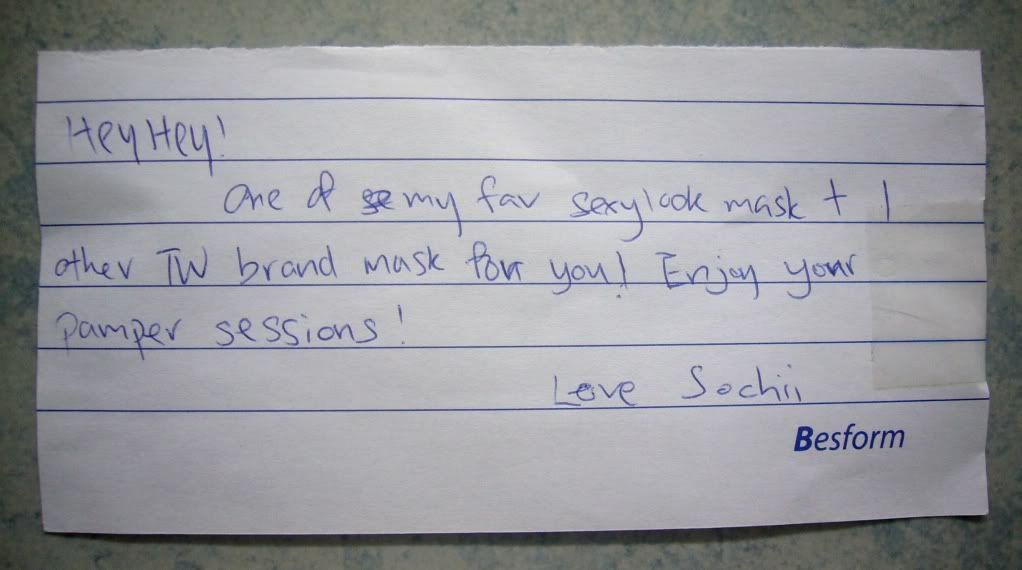 Hey Hey!
One of my fav sexylook mask + 1
other TW brand mask for you! Enjoy your
pamper sessions!
Love Sochii
Besform